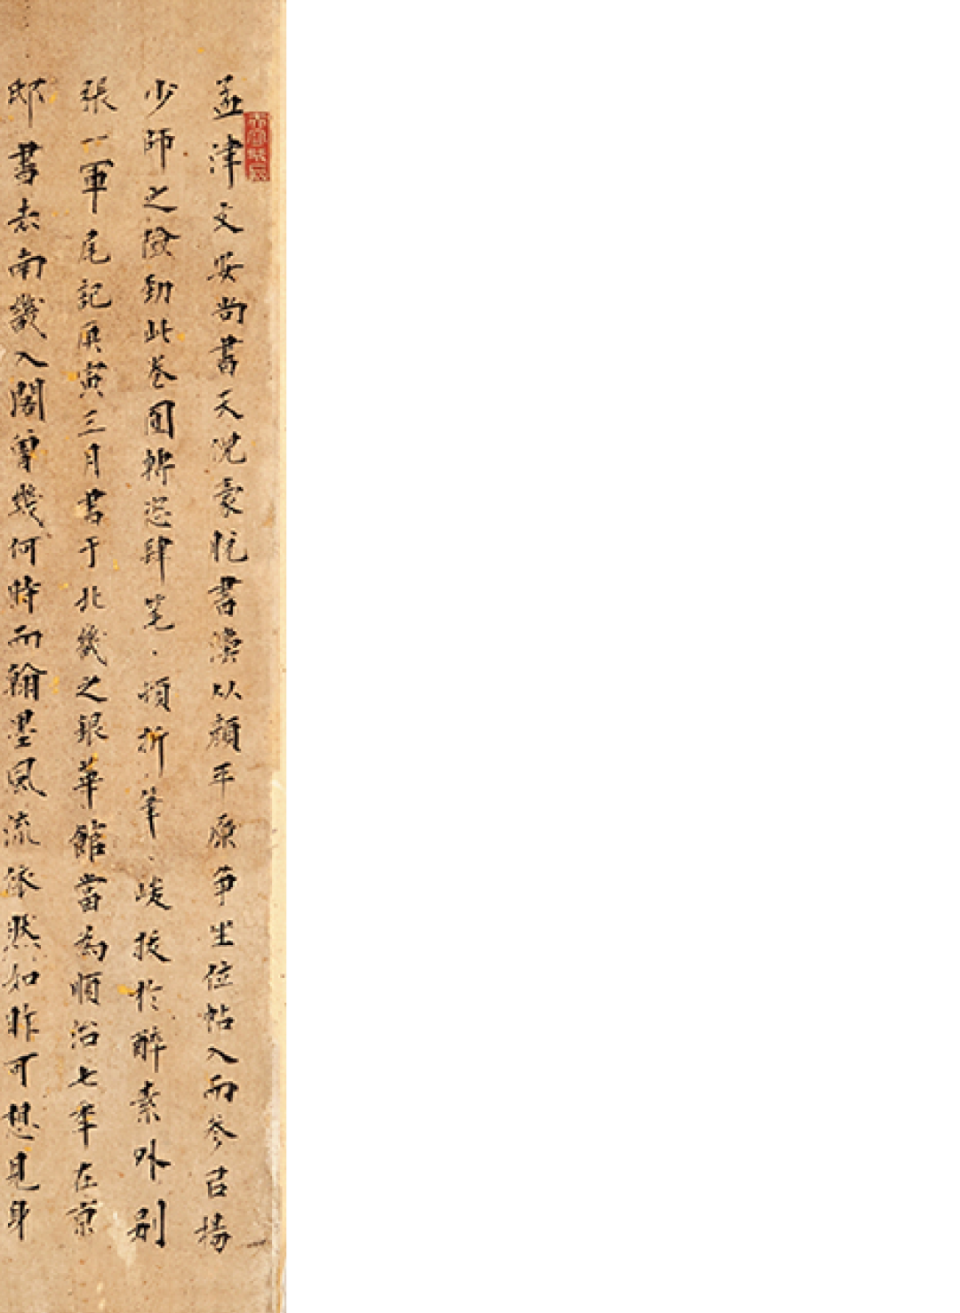 孟津文安尚書天況豪忱書瀆以顏平原爭坐位帖入而參召揚
少師之險勁此卷圓轉恣肆筆、頓折筆、峻拔於醉素外別
張一軍尾記庚寅三月書于北畿之銀華館當為順治七年在京
邸書去南畿入閣曾幾何時而翰墨風流依然如昨可想見身